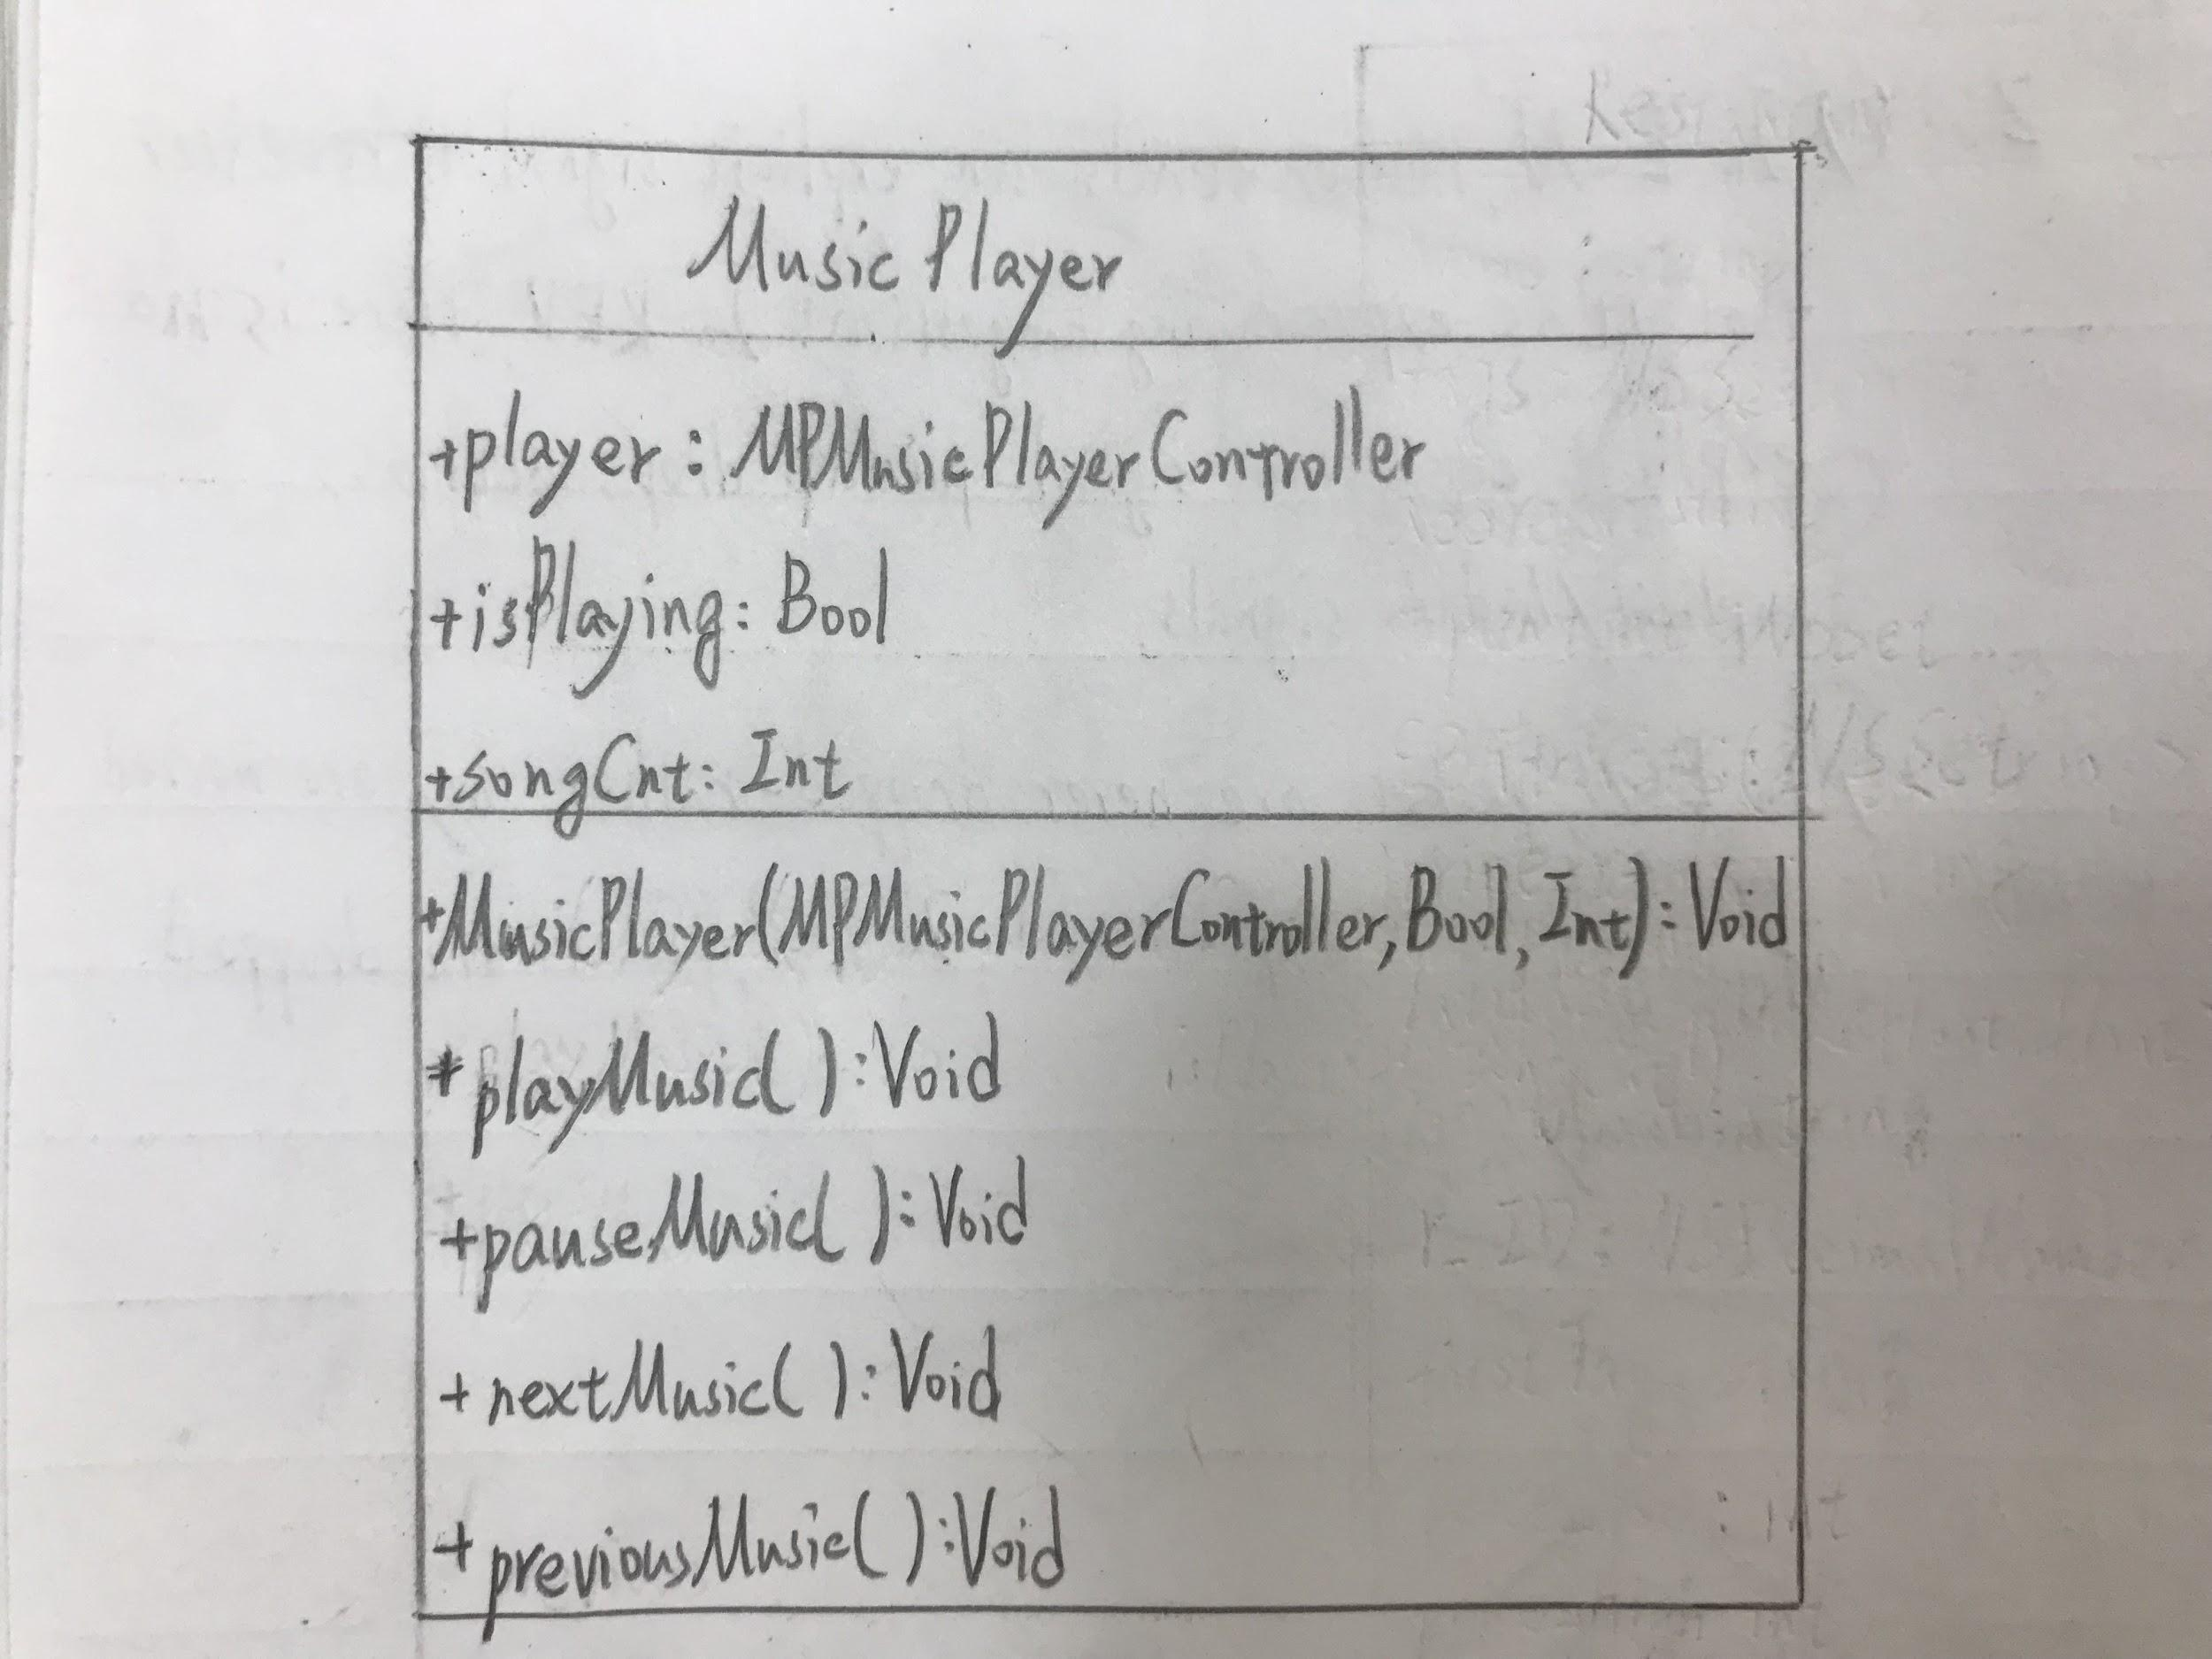 Music Player
+player: MPMusicPlayerController
+isPlaying: Bool
+songCnt: Int
+MusicPlayer(MPMusicPlayerController, Bool, Int): Void
+ playMusic( ): Void
+pauseMusic( ): Void
+ nextMusic( ): Void
+ previousMusic( ): Void